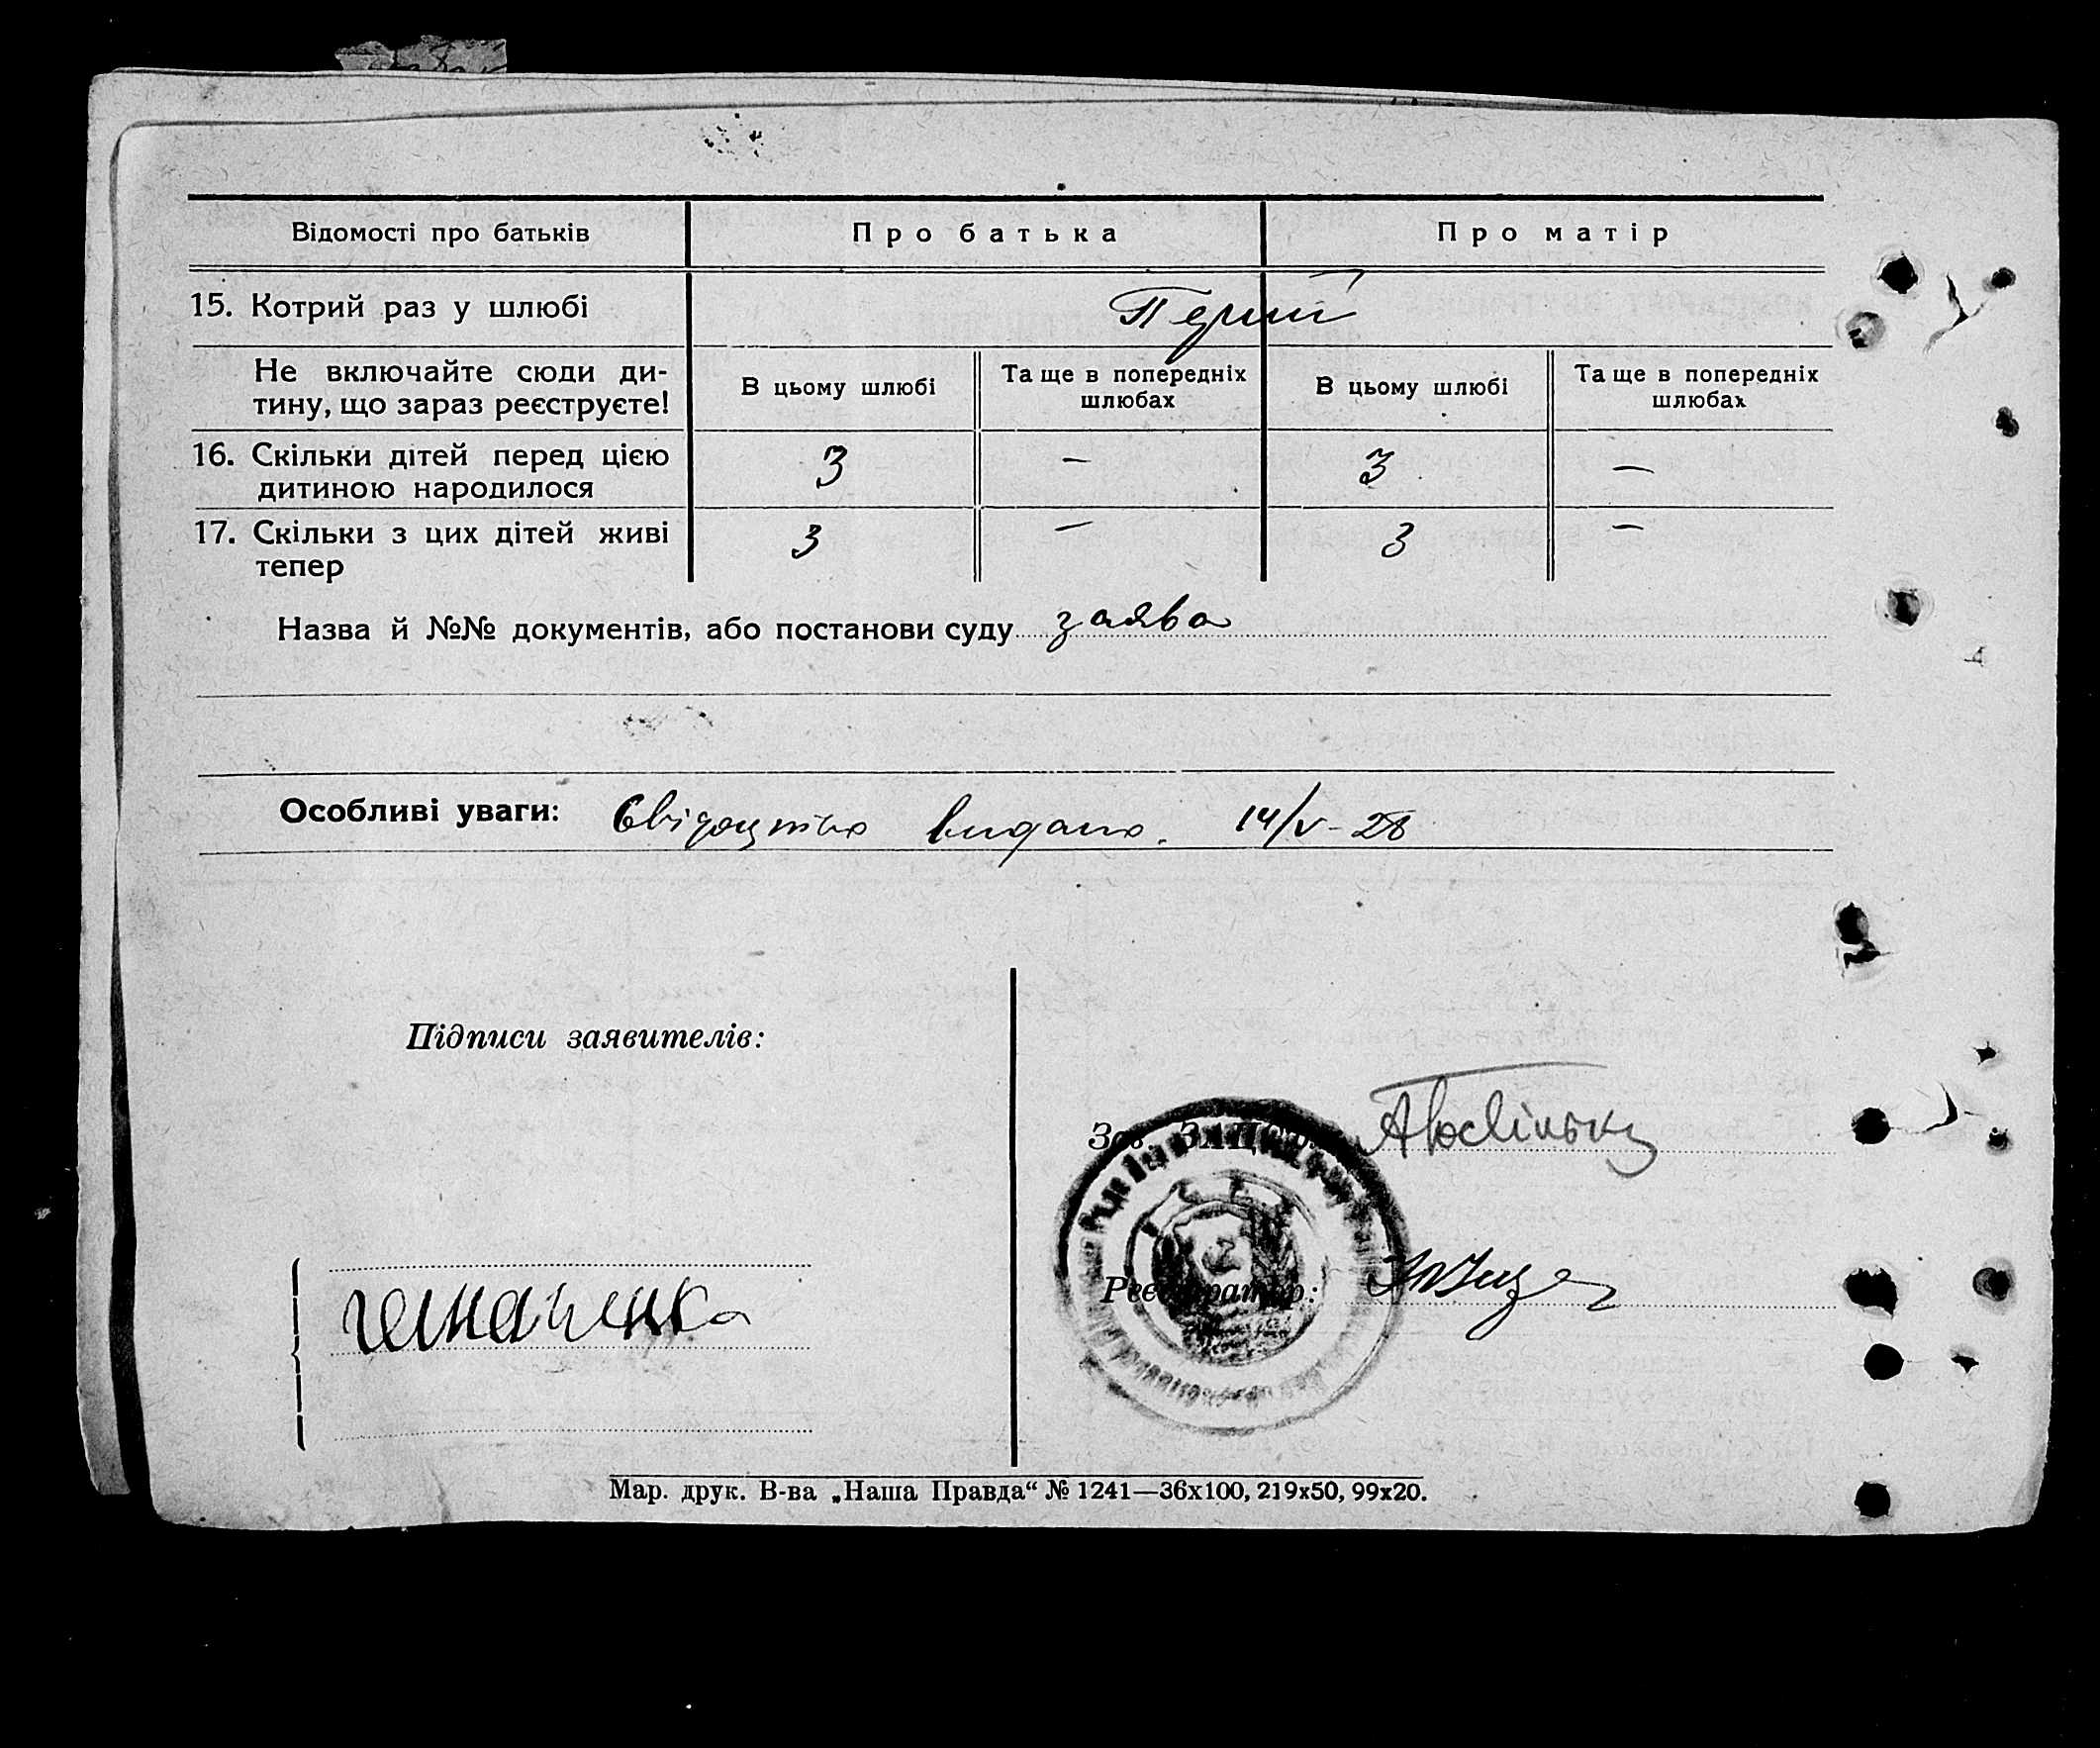 Відомості про батьків Про батька Про матір
15. Котрий раз у шлюбі Перший
Не включайте сюди ди- В цьому шлюбі Та ще в попередніх В цьому шлюбі Та ще в попередніх
тину, що зараз реєструєте! шлюбах шлюбах
16. Скільки дітей перед цією 3 — 3 —
дитиною народилося
17. Скільки з цих дітей живі 3 — 3 —
тепер
Назва й №№ документів, або постанови суду заява
Особливі уваги: Свідоцтво видано. 14/V-28
Підписи заявителів:
Зав. ЗАЦСом
Реєстратор:
Мар. друк. В-ва „Наша Правда“ № 1241—36х100, 219х50, 99х20.